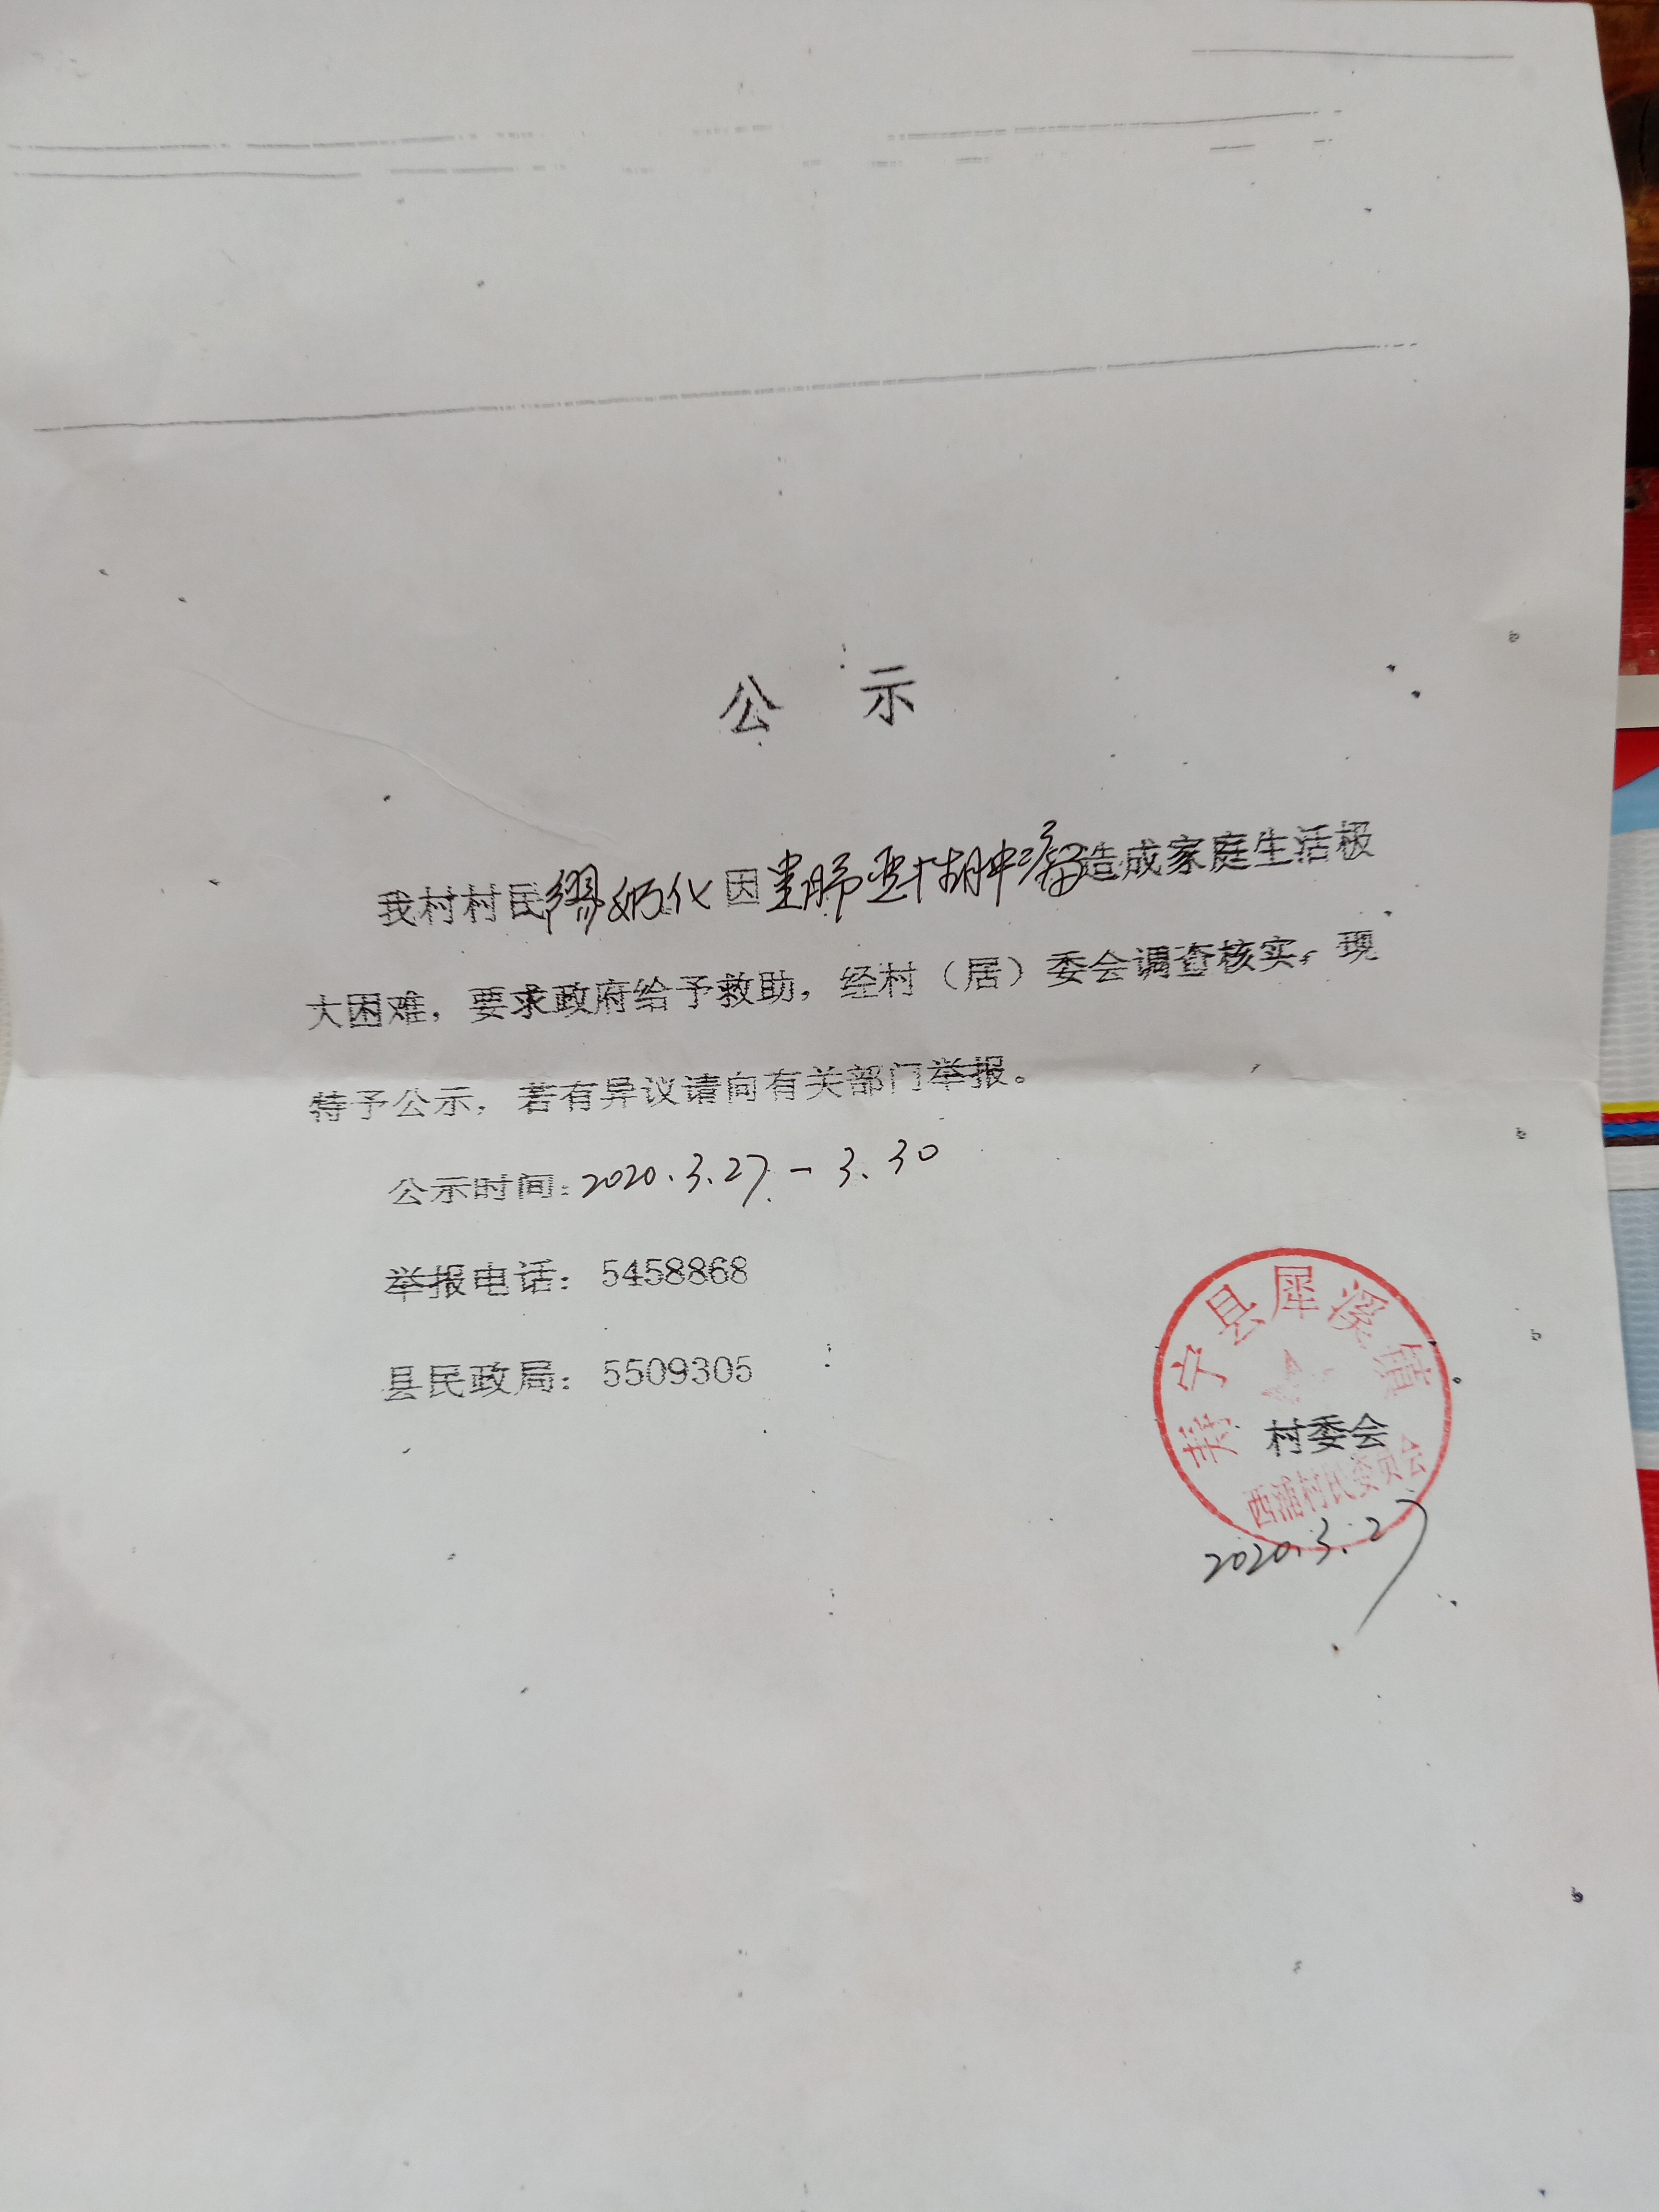 公 示
我村村民缪奶化因患肺恶性肿瘤造成家庭生活极
大困难，要求政府给予救助，经村（居）委会调查核实，现
特予公示，若有异议请向有关部门举报。
公示时间：2020.3.27.-3.30
举报电话：5458868
县民政局：5509305
寿宁县犀溪镇
村委会
西浦村民委员会
2020.3.27